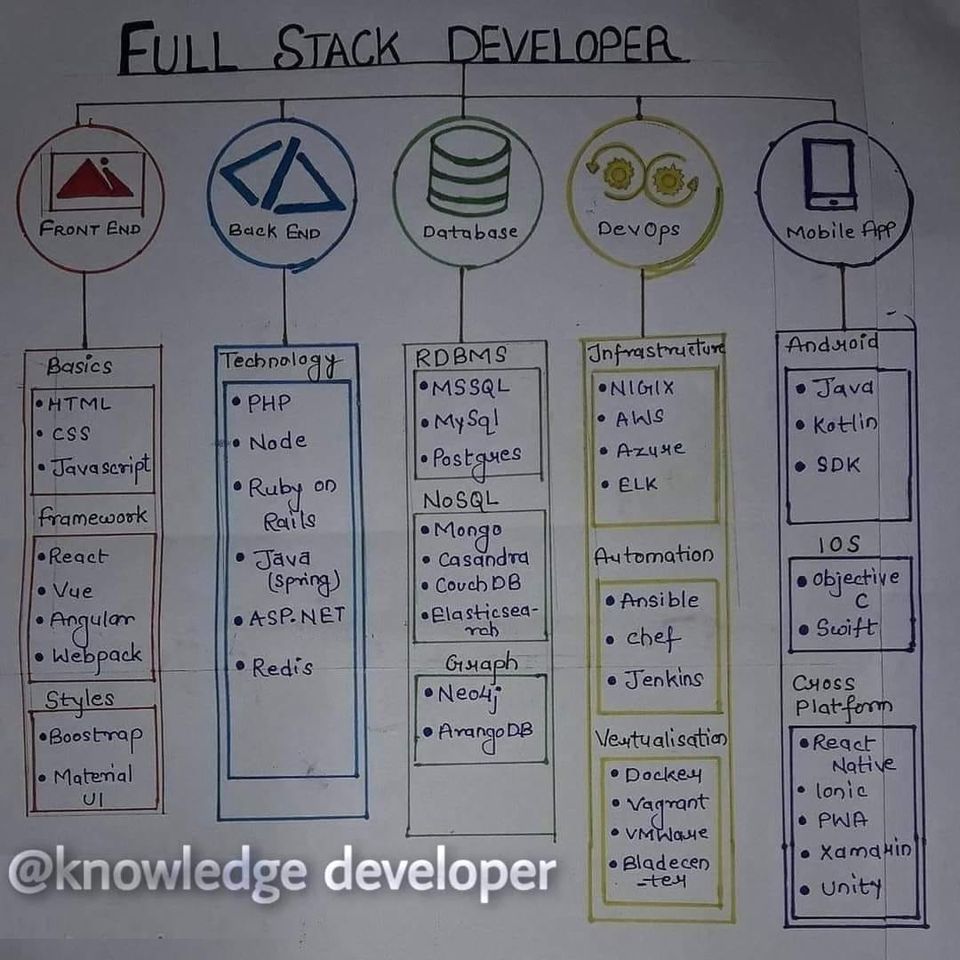 FULL STACK DEVELOPER
FRONT END
Basics
• HTML
• CSS
• Javascript
framework
• React
• Vue
• Angular
• Webpack
Styles
• Boostrap
• Material
UI
Back END
Technology
• PHP
• Node
• Ruby on
Rails
• Java
(Spring)
• ASP.NET
• Redis
Database
RDBMS
• MSSQL
• MySql
• Postgres
NoSQL
• Mongo
• Casandra
• CouchDB
• Elasticsea-
rch
Graph
• Neo4j
• ArangoDB
DevOps
Infrastructure
• NIGIX
• AWS
• Azure
• ELK
Automation
• Ansible
• chef
• Jenkins
Vertualisation
• Docker
• Vagrant
• VMWare
• Bladecen
-ter
Mobile App
Android
• Java
• Kotlin
• SDK
IOS
• Objective
C
• Swift
Cross
Platform
• React
Native
• Ionic
• PWA
• Xamarin
• Unity
@knowledge developer